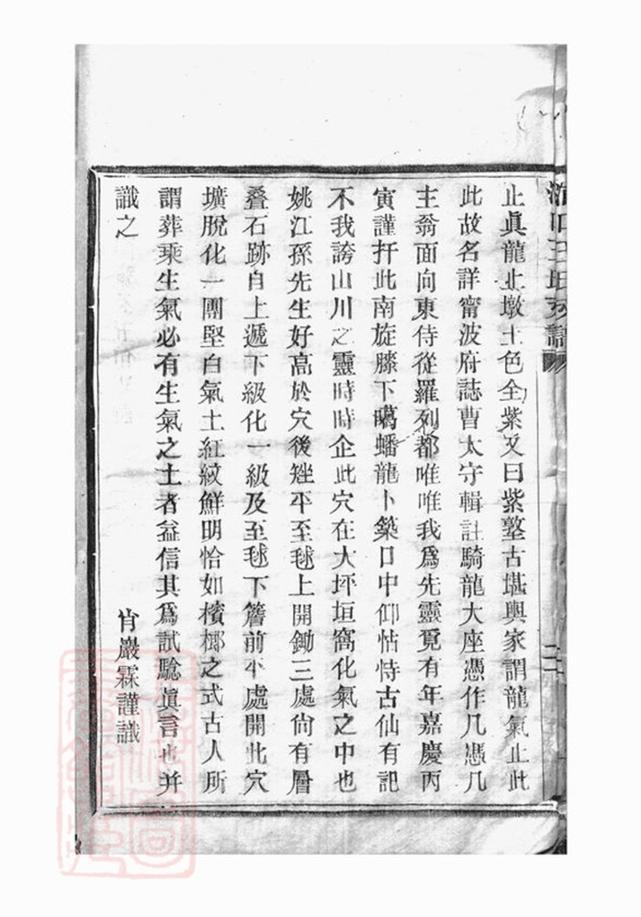 止眞龍止墩土色全紫又曰紫墪古堪輿家謂龍氣止此
此故名詳甯波府誌曹太守輯註騎龍大座憑作几憑几
主翁面向東侍從羅列都唯唯我爲先靈覓有年嘉慶丙
寅謹扦此南旋膝下曦蟠龍卜築口中仰怙恃古仙有記
不我誇山川之靈時時企此穴在大坪垣窩化氣之中也
姚江孫先生好高於穴後矬平至毬上開鋤三處尙有層
叠石跡自上遞下級化一級及至毬下簷前平處開此穴
壙脫化一團堅白氣土紅紋鮮明恰如檳榔之式古人所
謂葬乘生氣必有生氣之土者益信其爲試騐眞言也并
識之
肖巖霖謹識